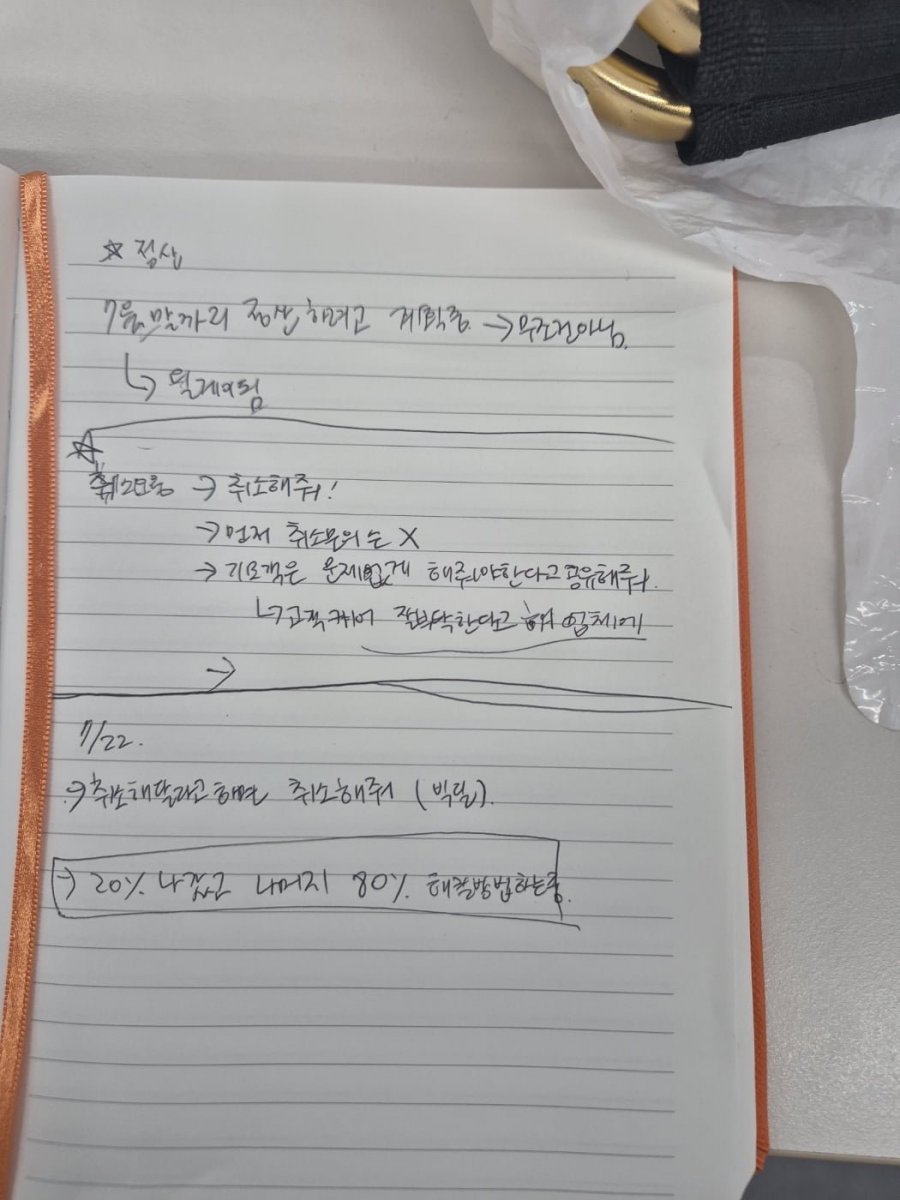 ☆ 정산
7월 말까지 정산하려고 계획중 → 무조건아님.
↳ 딜레이됨
☆
→ 취소해줘!
→ 먼저 취소문의는 X
→ 기요객은 문제없게 해줘야한다고 공유해줘.
↳ 고객케어 잘부탁한다고 업체에
→
7/22.
→ 취소해달라고하면 취소해줘 (빅딜).
→ 20% 나갔고 나머지 80% 해결방법하는중.